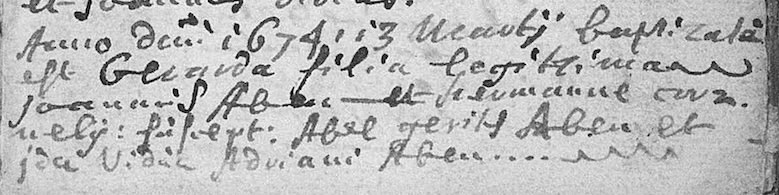 et Joannes
Anno dni 1674: 13 Martij baptizata
est Gerarda filia legittima
Joannis Aben et Hermanne cor=
nelij: suscept: Abel gerits Aben et
jda vidua Adriani Aben....